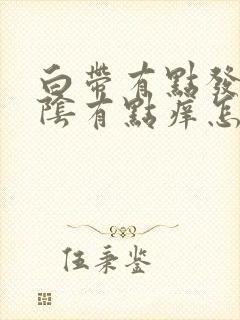 白帶有點發
陰有點痒怎
伍秉鉴